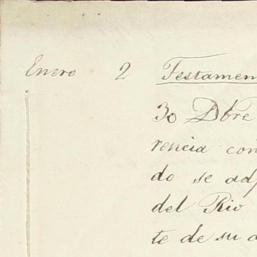 Enero 2 Testamen
30 Dbre
rencia con
do se adj
del Rio
te de su a